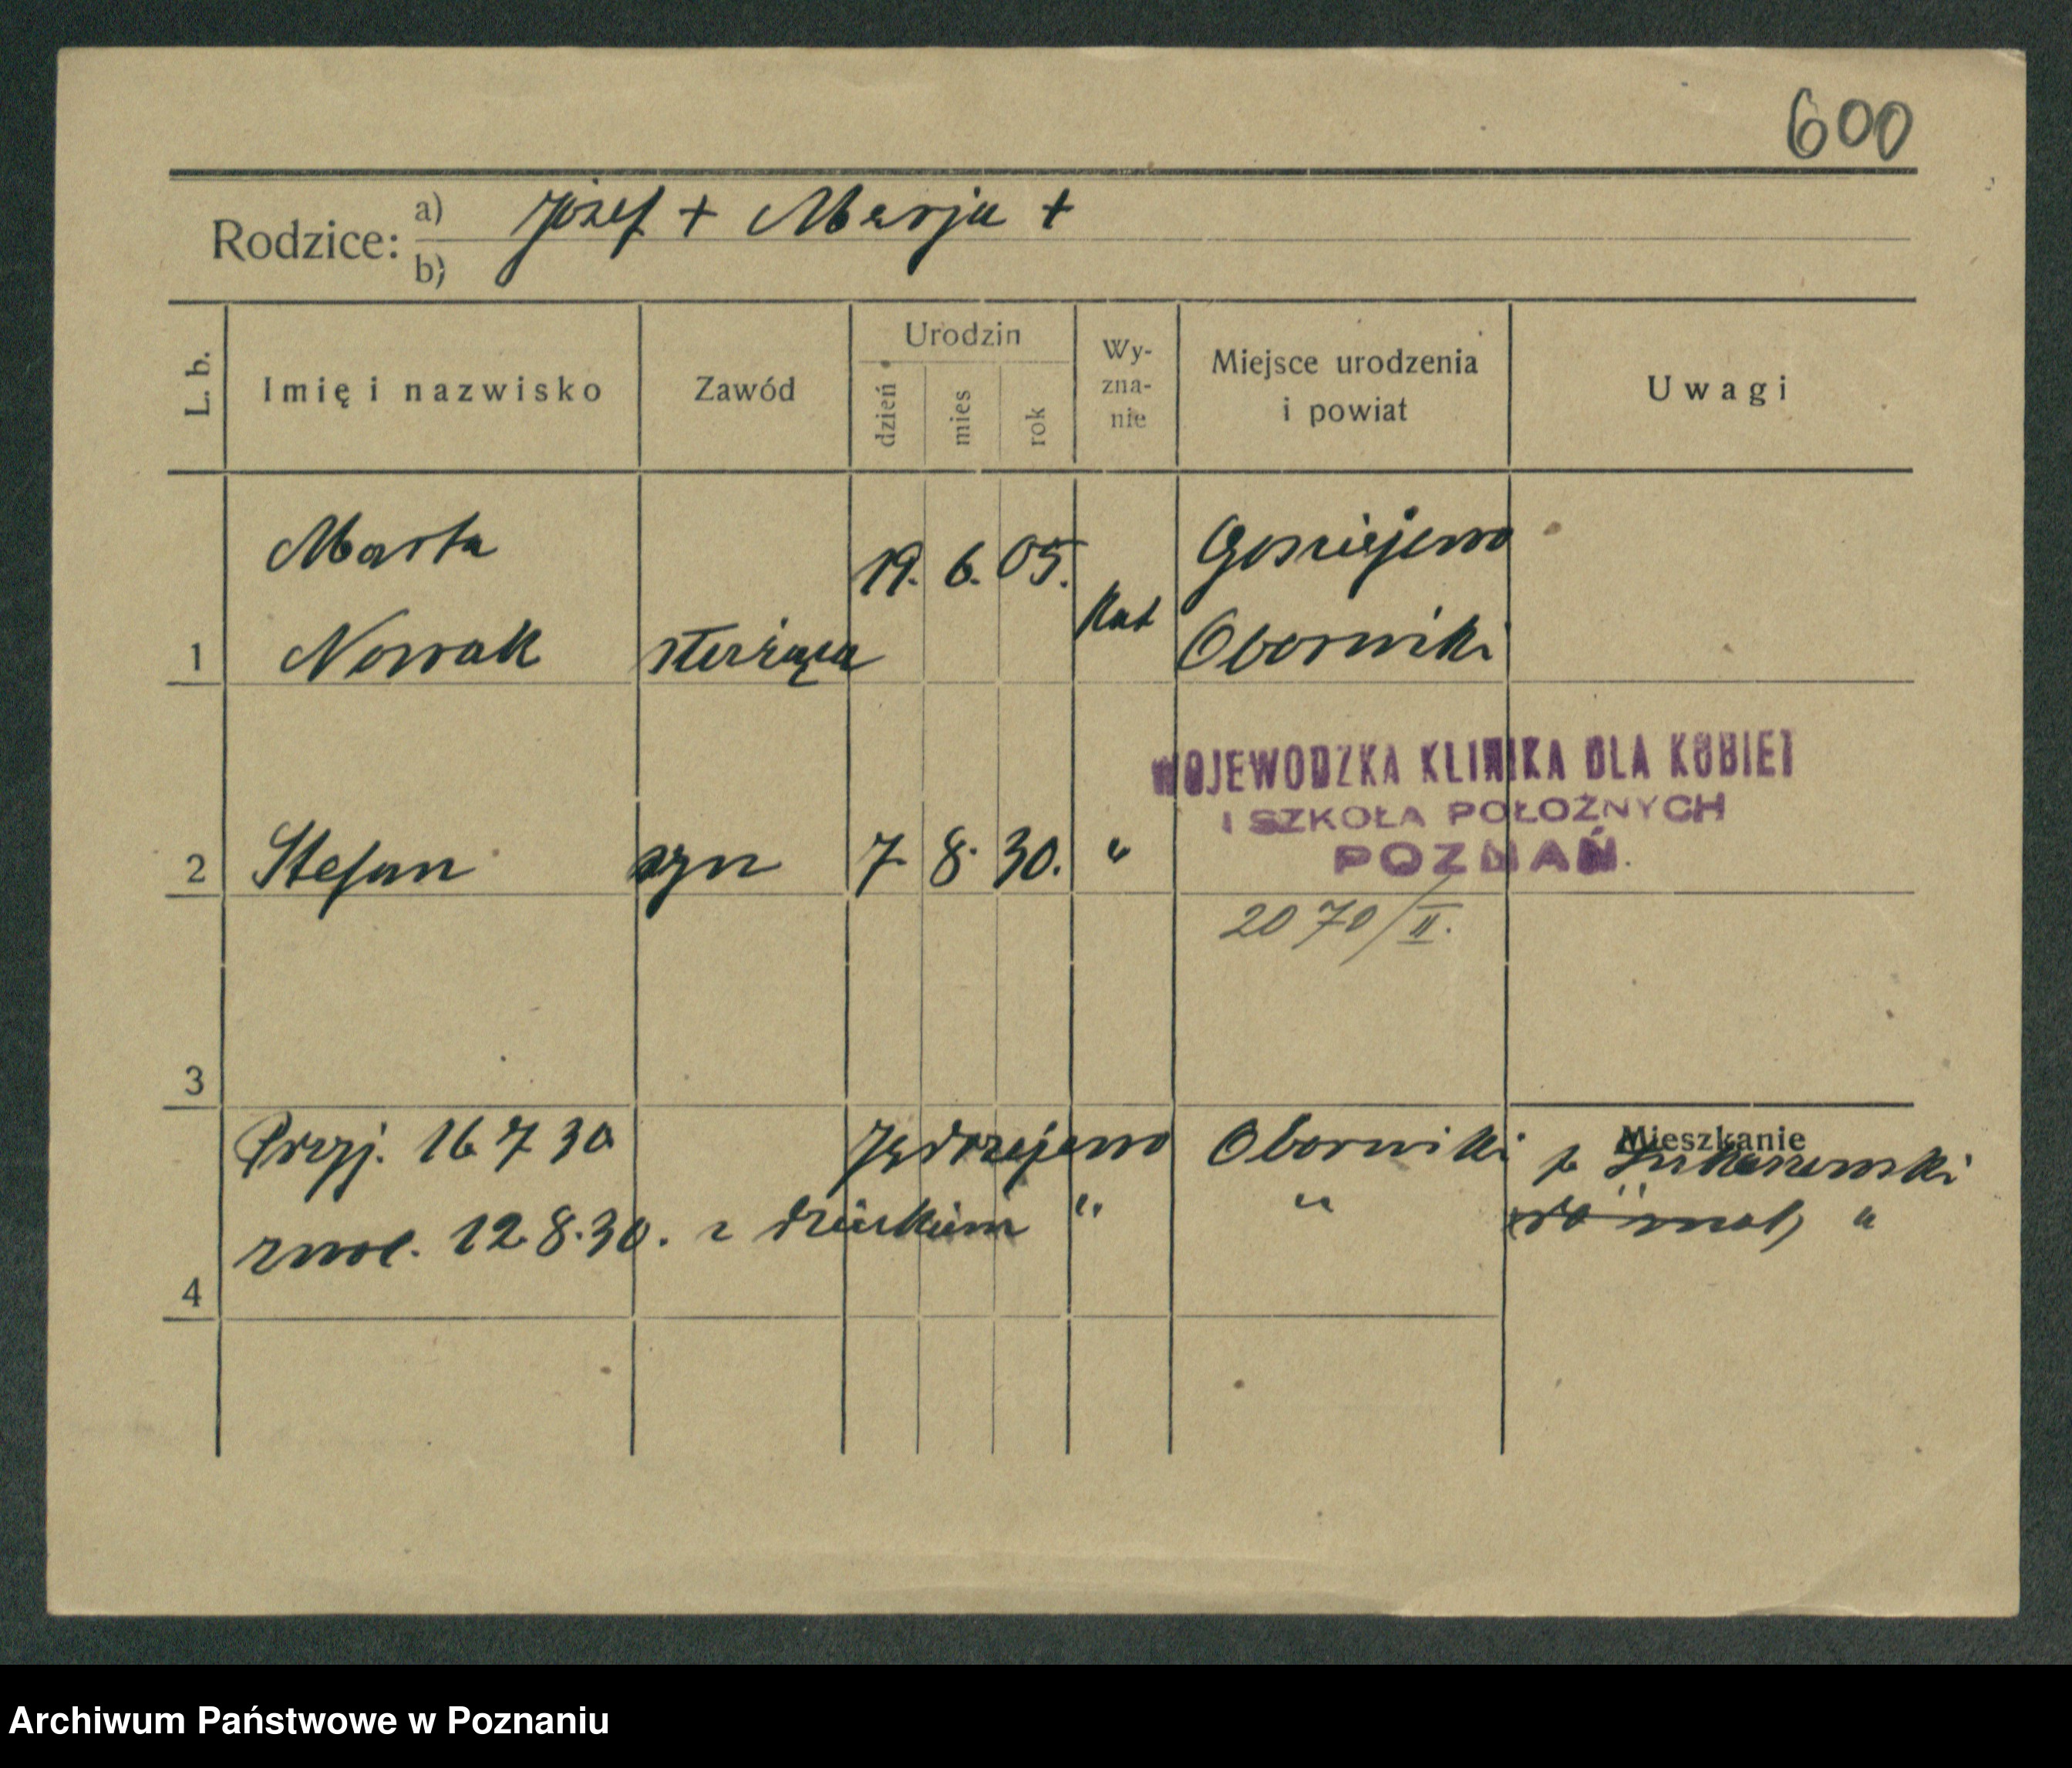 600
Rodzice: a) Józef + Marja +
b)
L. b.
Imię i nazwisko
Zawód
Urodzin
dzień
mies
rok
Wy-
zna-
nie
Miejsce urodzenia
i powiat
Uwagi
Marta
19. 6. 05.
Gościejewo
1 Nowak służąca Kat Oborniki
WOJEWODZKA KLINIKA DLA KOBIET
I SZKOŁA POŁOŻNYCH
POZNAŃ.
2 Stefan syn 7 8. 30. "
2070/II.
3
Mieszkanie
Przyj. 16 7 30 Jędrzejewo Oborniki p Łukaszewski
zwol. 12 8.30. z dzieckiem " " "
4
Archiwum Państwowe w Poznaniu